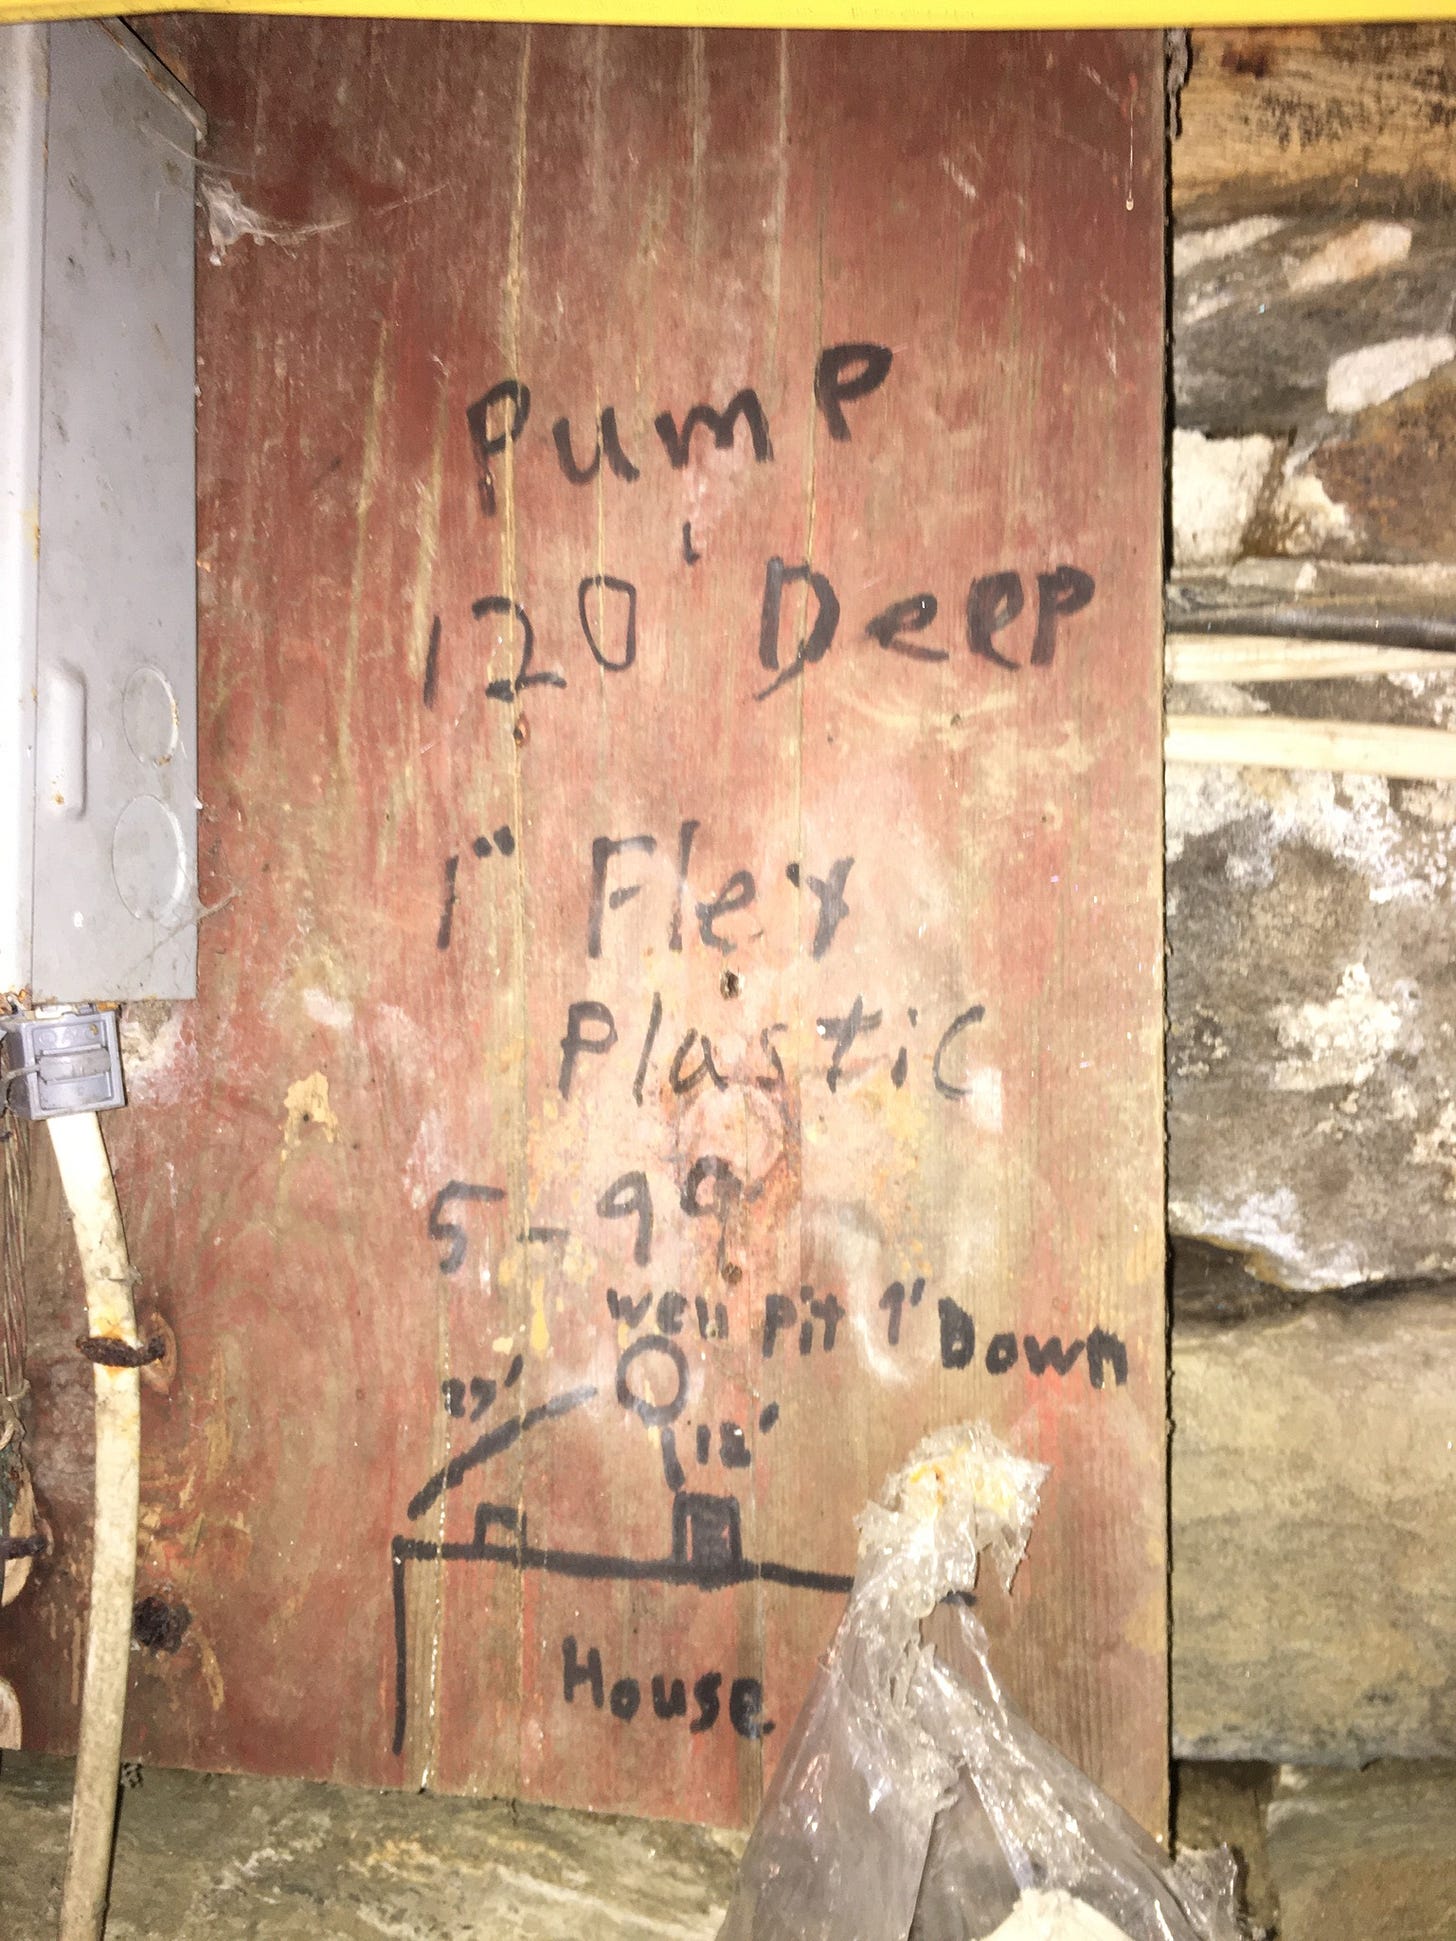 Pump
120' Deep
1" Flex
Plastic
5-99
well Pit 1' Down
27'
12'
House